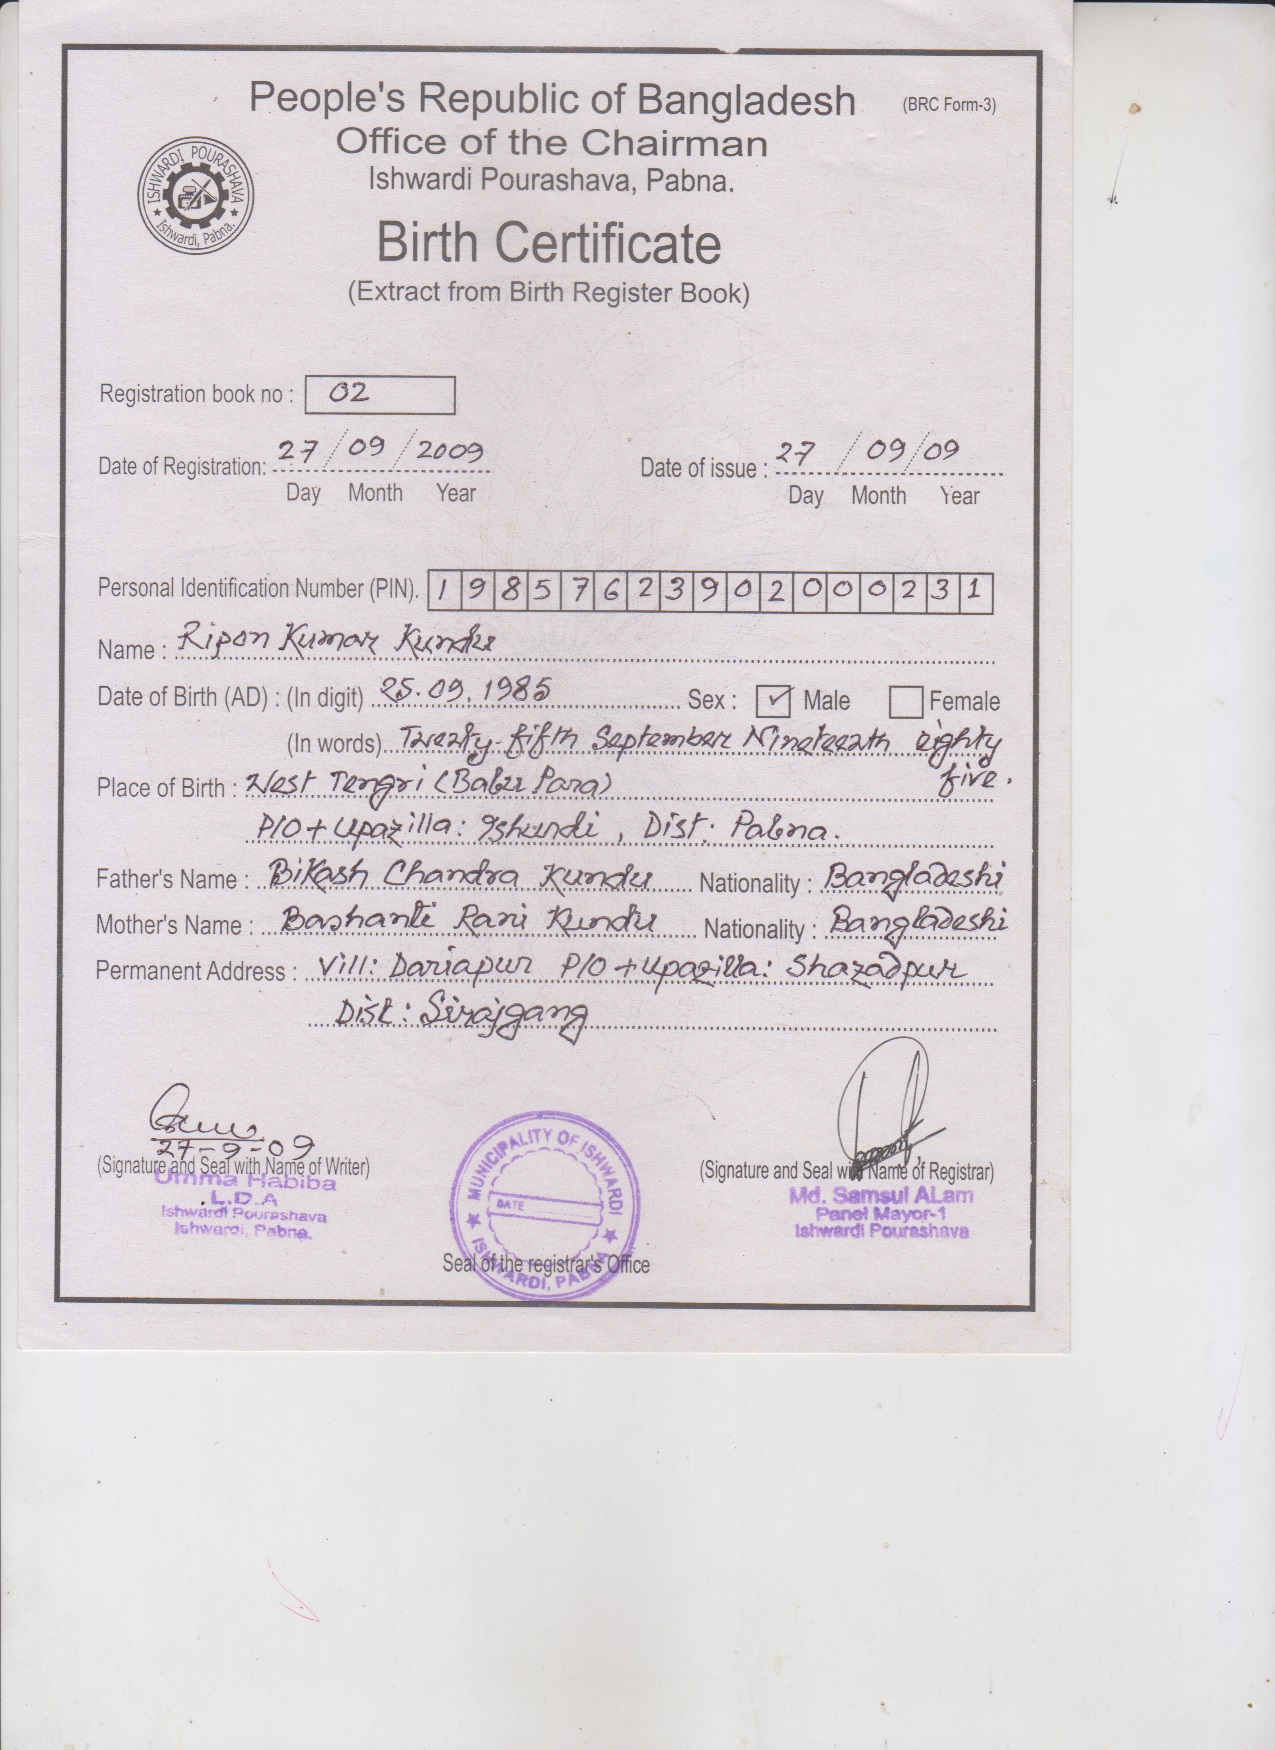 People's Republic of Bangladesh (BRC Form-3)
Office of the Chairman
Ishwardi Pourashava, Pabna.
ISHWARDI POURASHAVA
Ishwardi, Pabna.
Birth Certificate
(Extract from Birth Register Book)
Registration book no : 02
Date of Registration: 27/09/2009 Date of issue : 27/09/09
Day Month Year Day Month Year
Personal Identification Number (PIN). 19857623902000231
Name : Ripon Kumar Kundu
Date of Birth (AD) : (In digit) 25.09.1985 Sex : ✓ Male Female
(In words) Twenty-fifth September Nineteenth eighty
five.
Place of Birth : West Tengri (Babu Para)
P/O + Upazilla: Ishurdi, Dist: Pabna.
Father's Name : Bikash Chandra Kundu Nationality : Bangladeshi
Mother's Name : Bashanti Rani Kundu Nationality : Bangladeshi
Permanent Address : Vill: Dariapur P/O + Upazilla: Shazadpur
Dist: Sirajgang
27-9-09
(Signature and Seal with Name of Writer) (Signature and Seal with Name of Registrar)
Umma Habiba
L.D.A
Ishwardi Pourashava
Ishwardi, Pabna.
MUNICIPALITY OF ISHWARDI
DATE
ISHWARDI, PABNA
Md. Samsul ALam
Panel Mayor-1
Ishwardi Pourashava
Seal of the registrar's Office